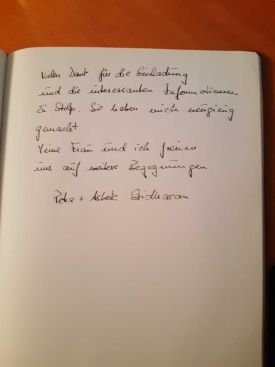 Vielen Dank für die Einladung
und die interessanten Informationen
zu Stolp. Sie haben mich neugierig
gemacht.
Meine Frau und ich freuen
uns auf weitere Begegnungen.
+ Ashok Sridharan